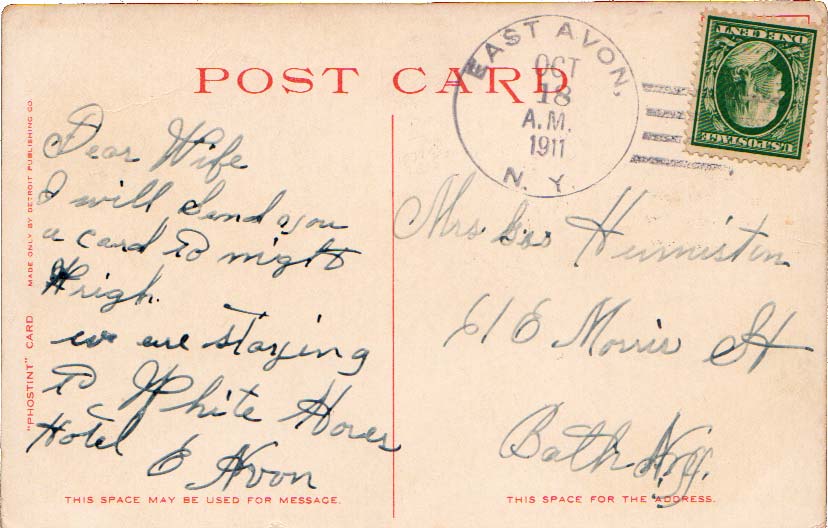 POST CARD
EAST AVON,
OCT
18
A.M.
1911
N. Y.
U.S. POSTAGE
ONE CENT
Dear Wife
I will send you
a card to night
we are staying
to White Hores
Hotel E Avon
Mrs Gus Humiston
61 E Morris St
Bath N.Y.
MADE ONLY BY DETROIT PUBLISHING CO.
"PHOSTINT" CARD
THIS SPACE MAY BE USED FOR MESSAGE.
THIS SPACE FOR THE ADDRESS.